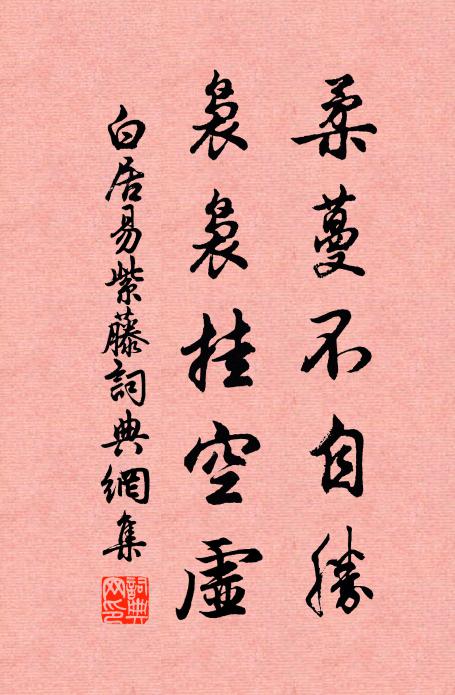 柔蔓不自勝
裊裊挂空虛
白居易紫藤詞典網集
詞典網印